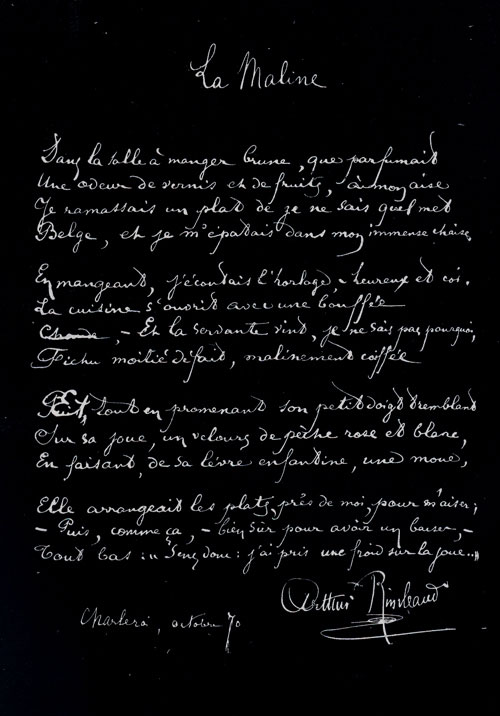 La Maline
Dans la salle à manger brune, que parfumait
Une odeur de vernis et de fruits, à mon aise
Je ramassais un plat de je ne sais quel met
Belge, et je m'épatais dans mon immense chaise.
En mangeant, j'écoutais l'horloge, - heureux et coi.
La cuisine s'ouvrit avec une bouffée
- Et la servante vint, je ne sais pas pourquoi,
Fichu moitié défait, malinement coiffée
Et, tout en promenant son petit doigt tremblant
Sur sa joue, un velours de pêche rose et blanc,
En faisant, de sa lèvre enfantine, une moue,
Elle arrangeait les plats, près de moi, pour m'aiser;
- Puis, comme ça, - bien sûr pour avoir un baiser, -
Tout bas : « Sens donc : j'ai pris une froid sur la joue.. »
Arthur Rimbaud
Charleroi, octobre 70